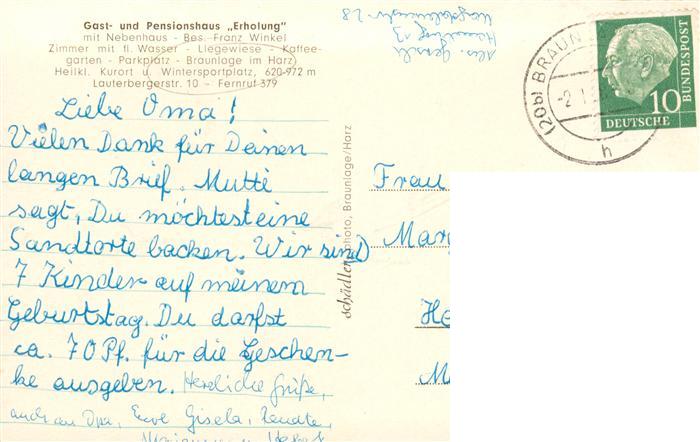 Gast- und Pensionshaus „Erholung"
mit Nebenhaus - Bes. Franz Winkel
Zimmer mit fl. Wasser - Liegewiese - Kaffee-
garten - Parkplatz - Braunlage im Harz
Heilkl. Kurort u. Wintersportplatz, 620-972 m
Lauterbergerstr. 10 - Fernruf 379
Liebe Oma!
Vielen Dank für Deinen
langen Brief. Mutti
sagt, Du möchtest eine
Sandtorte backen. Wir sind
7 Kinder auf meinem
Geburtstag. Du darfst
ca. 70 Pf. für die Geschen-
ke ausgeben. Herzliche Grüße,
auch an Opa, Eure Gisela, Renate,
schädler photo, Braunlage/Harz
(20b) BRAUN
-2.1
h
10
DEUTSCHE
BUNDESPOST
Frau
Mar
He